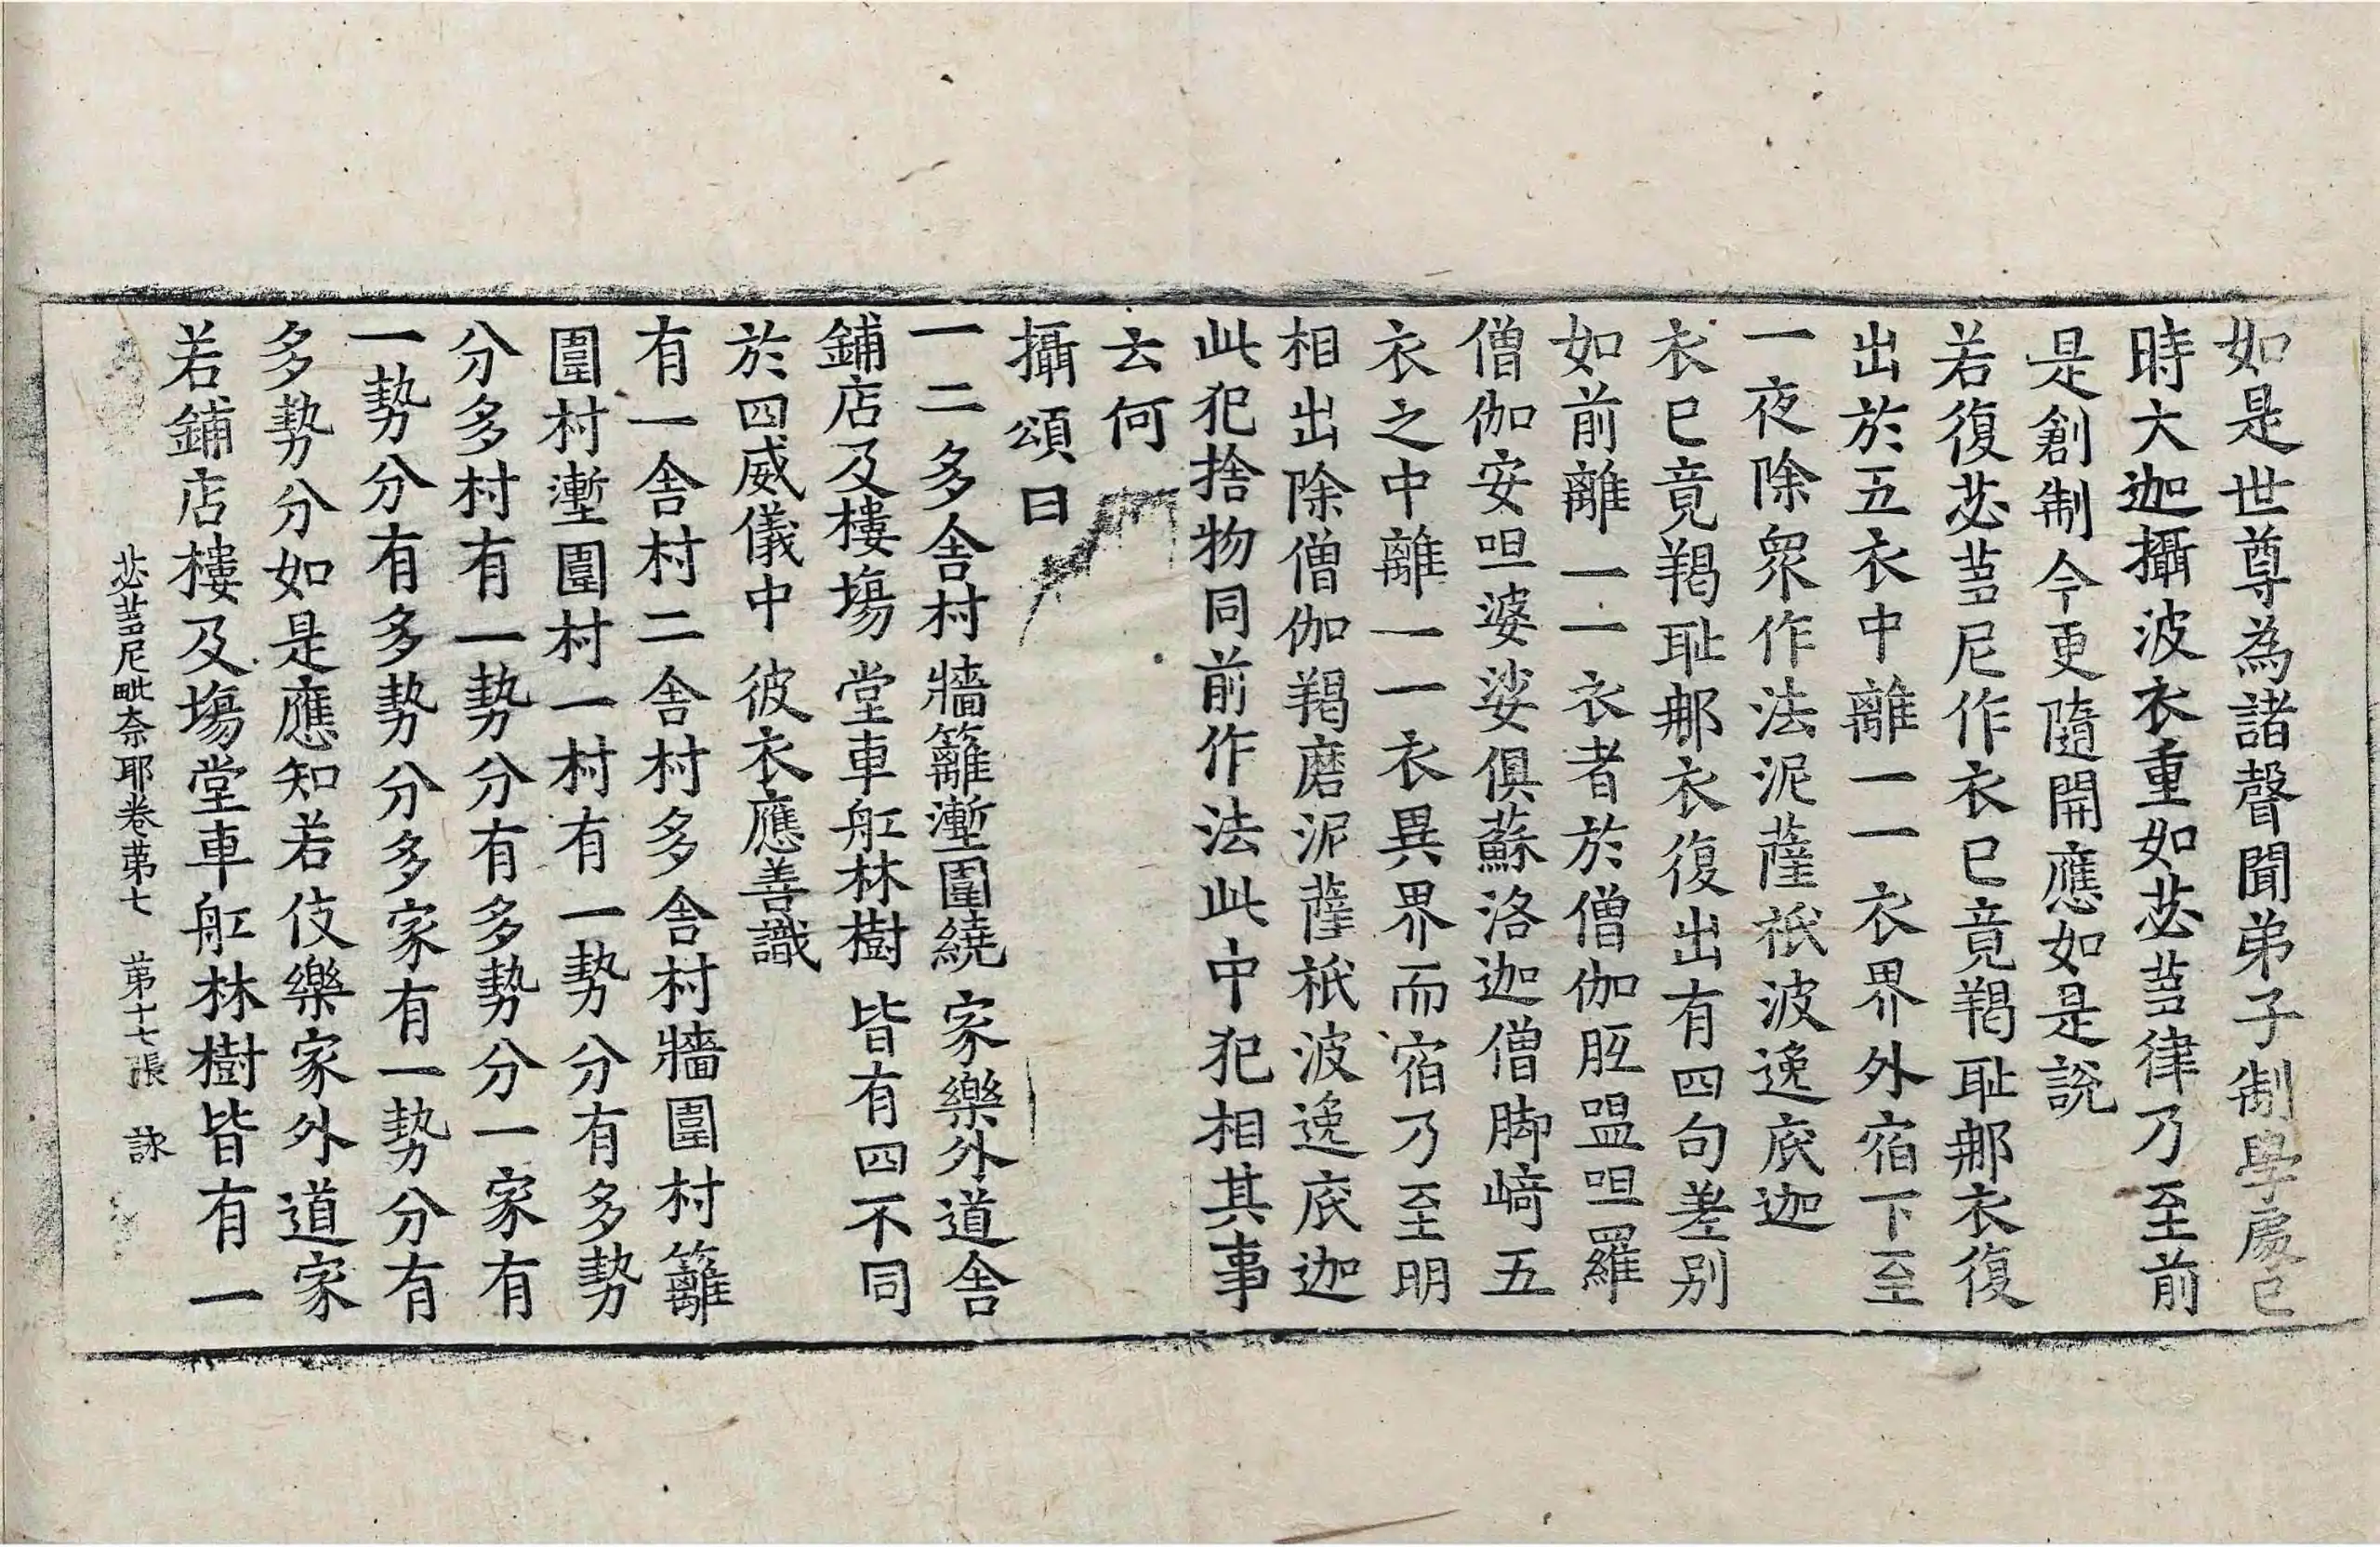 如是世尊為諸聲聞弟子制學處已
時大迦攝波衣重如苾蒭律乃至前
是創制今更隨開應如是說
若復苾蒭尼作衣已竟羯耻那衣復
出於五衣中離一一衣界外宿下至
一夜除衆作法泥薩祇波逸底迦
衣已竟羯耻那衣復出有四句差別
如前離一一衣者於僧伽胝嗢呾羅
僧伽安呾婆娑俱蘇洛迦僧脚崎五
衣之中離一一衣異界而宿乃至明
相出除僧伽羯磨泥薩祇波逸底迦
此犯捨物同前作法此中犯相其事
云何
攝頌曰
一二多舍村 牆籬塹圍繞 家樂外道舍
鋪店及樓場 堂車舡林樹 皆有四不同
於四威儀中 彼衣應善識
有一舍村二舍村多舍村牆圍村籬
圍村塹圍村一村有一勢分有多勢
分多村有一勢分有多勢分一家有
一勢分有多勢分多家有一勢分有
多勢分如是應知若伎樂家外道家
若鋪店樓及場堂車舡林樹皆有一
苾蒭尼毗奈耶卷第七 第十七張 詠